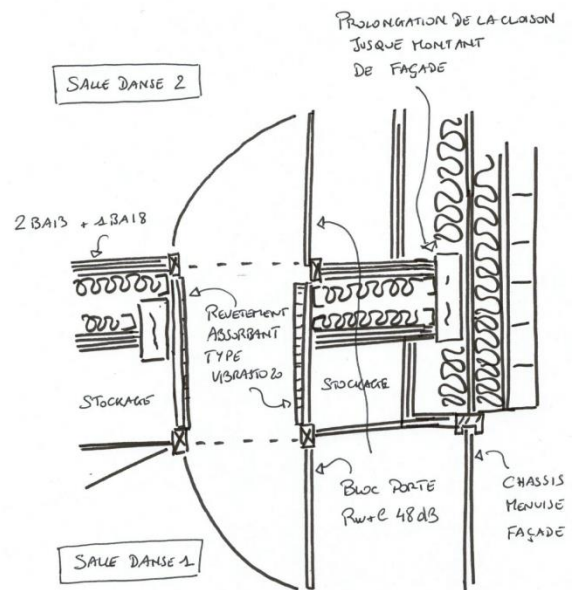 PROLONGATION DE LA CLOISON
JUSQUE MONTANT
DE FAÇADE
SALLE DANSE 2
2BA13 + 1BA18
REVETEMENT
ABSORBANT
TYPE
VIBRASTO 20
STOCKAGE
STOCKAGE
BLOC PORTE
RW+C 48dB
CHASSIS
MENUISE
FAÇADE
SALLE DANSE 1